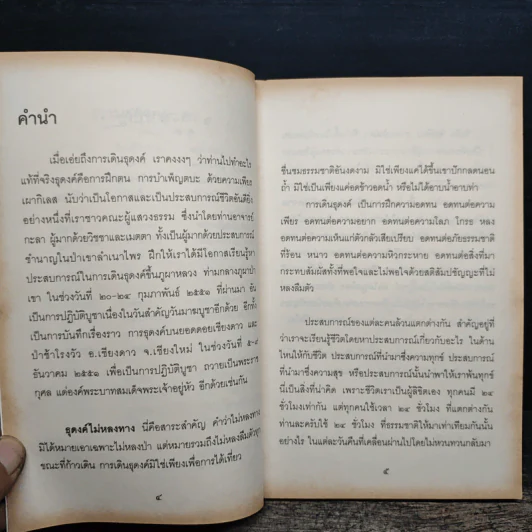 คำนำ
เมื่อเอ่ยถึงการเดินธุดงค์ เราคงงงๆ ว่าท่านไปทำอะไร
แท้ที่จริงธุดงค์คือการฝึกตน การบำเพ็ญตบะ ด้วยความเพียร
เผากิเลส นับว่าเป็นโอกาสและเป็นประสบการณ์ชีวิตอันดียิ่ง
อย่างหนึ่งที่เราชาวคณะผู้แสวงธรรม ซึ่งนำโดยท่านอาจารย์
กะลา ผู้มากด้วยวิชชาและเมตตา ทั้งเป็นผู้มากด้วยประสบการณ์
ชำนาญในป่าเขาลำเนาไพร ฝึกให้เราได้มีโอกาสเรียนรู้หา
ประสบการณ์ในการเดินธุดงค์ขึ้นภูผาหลวง ท่ามกลางภูผาป่า
เขา ในช่วงวันที่ ๒๐-๒๔ กุมภาพันธ์ ๒๕๕๑ ที่ผ่านมา อัน
เป็นการปฏิบัติบูชาเนื่องในวันสำคัญวันมาฆบูชาอีกด้วย อีกทั้ง
เป็นการบันทึกเรื่องราว การธุดงค์บนยอดดอยเชียงดาว และ
ป่าช้าโรงวัว อ.เชียงดาว จ.เชียงใหม่ ในช่วงวันที่ ๕-๙
ธันวาคม ๒๕๕๑ เพื่อเป็นการปฏิบัติบูชา ถวายเป็นพระราช
กุศล แด่องค์พระบาทสมเด็จพระเจ้าอยู่หัว อีกด้วยเช่นกัน
ธุดงค์ไม่หลงทาง นี่คือสาระสำคัญ คำว่าไม่หลงทาง
มิได้หมายเอาเฉพาะไม่หลงป่า แต่หมายรวมถึงไม่หลงลืมตัว
ขณะที่ก้าวเดิน การเดินธุดงค์มิใช่เพียงเพื่อการได้เที่ยว
๔
ชื่นชมธรรมชาติอันงดงาม มิใช่เพียงแค่ได้ขึ้นเขาปักกลดนอน
ถ้ำ มิใช่เป็นเพียงแค่อดข้าวอดน้ำ หรือไม่ได้อาบน้ำอาบท่า
การเดินธุดงค์ เป็นการฝึกความอดทน อดทนต่อความ
เพียร อดทนต่อความอยาก อดทนต่อความโลภ โกรธ หลง
อดทนต่อความเห็นแก่ตัวกลัวเสียเปรียบ อดทนต่อภัยธรรมชาติ
ที่ร้อน หนาว อดทนต่อความหิวกระหาย อดทนต่อสิ่งที่มา
กระทบสัมผัสทั้งที่พอใจและไม่พอใจด้วยสติสัมปชัญญะที่ไม่
หลงลืมตัว
ประสบการณ์ของแต่ละคนล้วนแตกต่างกัน สำคัญอยู่ที่
ว่าเราจะเรียนรู้ชีวิตโดยหาประสบการณ์เกี่ยวกับอะไร ในด้าน
ไหนให้กับชีวิต ประสบการณ์ที่นำมาซึ่งความทุกข์ ประสบการณ์
ที่นำมาซึ่งความสุข หรือประสบการณ์นั้นนำพาให้เราพ้นทุกข์
นี่เป็นสิ่งที่น่าคิด เพราะชีวิตเราเป็นผู้ลิขิตเอง ทุกคนมี ๒๔
ชั่วโมงเท่ากัน แต่ทุกคนใช้เวลา ๒๔ ชั่วโมง ที่แตกต่างกัน
ท่านละครับใช้ ๒๔ ชั่วโมง ที่ธรรมชาติให้มาเท่าเทียมกันนั้น
อย่างไร ในแต่ละวันคืนที่เคลื่อนผ่านไปโดยไม่หวนทวนกลับมา
๕